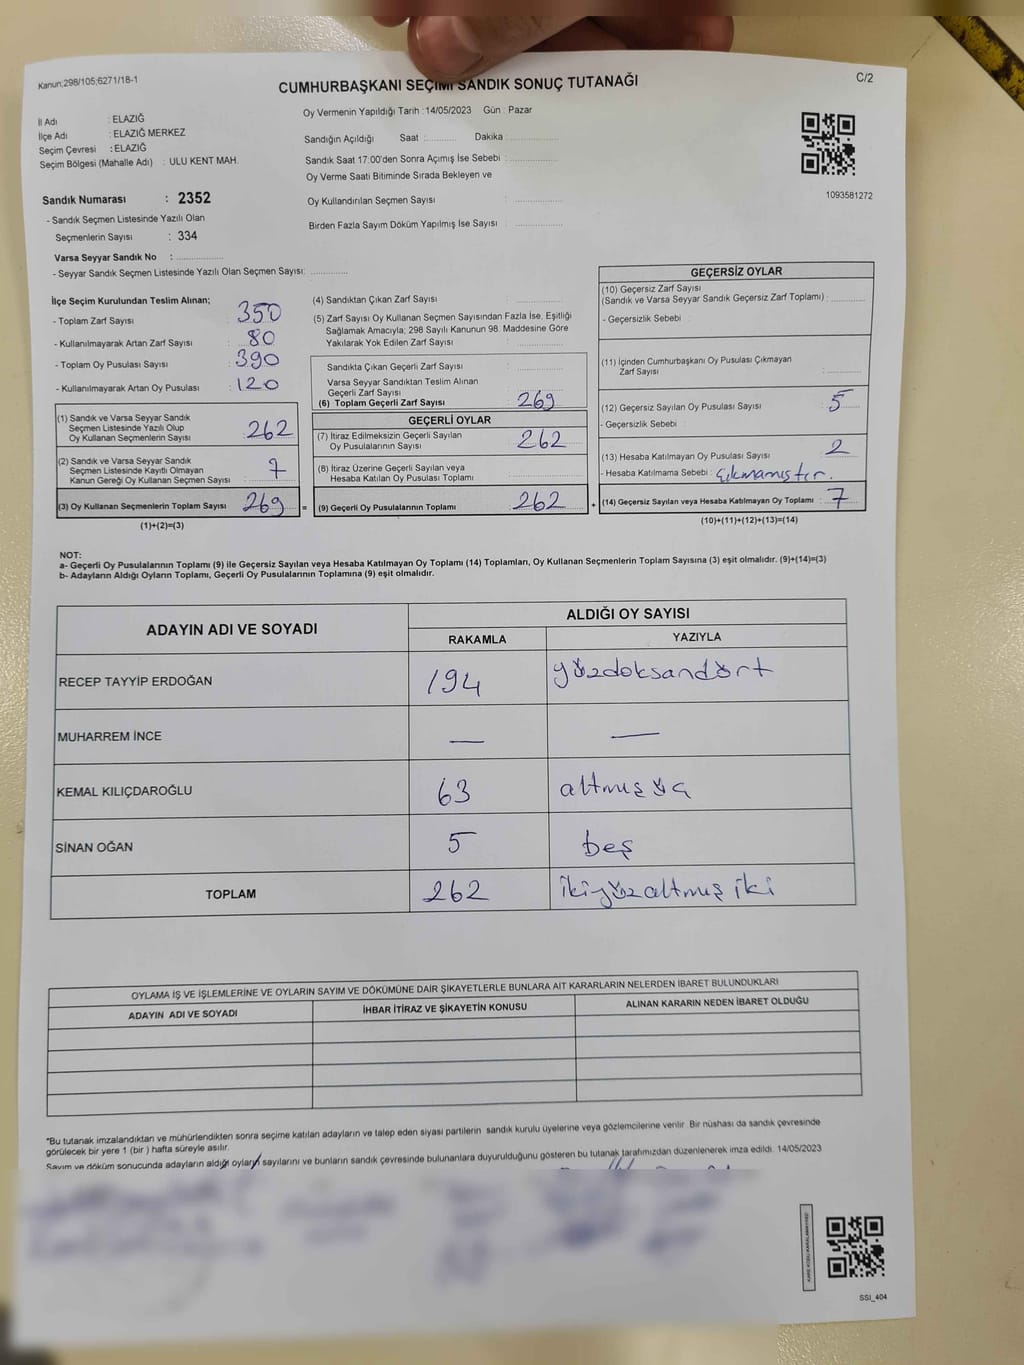 Kanun;298/105;6271/18-1
CUMHURBAŞKANI SEÇİMİ SANDIK SONUÇ TUTANAĞI
C/2
İl Adı : ELAZIĞ
İlçe Adı : ELAZIĞ MERKEZ
Seçim Çevresi : ELAZIĞ
Seçim Bölgesi (Mahalle Adı) : ULU KENT MAH.
Oy Vermenin Yapıldığı Tarih : 14/05/2023 Gün : Pazar
Sandığın Açıldığı Saat : Dakika :
Sandık Saat 17:00'den Sonra Açımış İse Sebebi :
Oy Verme Saati Bitiminde Sırada Bekleyen ve
Oy Kullandırılan Seçmen Sayısı :
Birden Fazla Sayım Döküm Yapılmış İse Sayısı :
1093581272
Sandık Numarası : 2352
- Sandık Seçmen Listesinde Yazılı Olan
Seçmenlerin Sayısı : 334
Varsa Seyyar Sandık No :
- Seyyar Sandık Seçmen Listesinde Yazılı Olan Seçmen Sayısı:
İlçe Seçim Kurulundan Teslim Alınan;
- Toplam Zarf Sayısı : 350
- Kullanılmayarak Artan Zarf Sayısı : 80
- Toplam Oy Pusulası Sayısı : 390
- Kullanılmayarak Artan Oy Pusulası : 120
(1) Sandık ve Varsa Seyyar Sandık
Seçmen Listesinde Yazılı Olup
Oy Kullanan Seçmenlerin Sayısı : 262
(2) Sandık ve Varsa Seyyar Sandık
Seçmen Listesinde Kayıtlı Olmayan
Kanun Gereği Oy Kullanan Seçmen Sayısı : 7
(3) Oy Kullanan Seçmenlerin Toplam Sayısı : 269 =
(1)+(2)=(3)
(4) Sandıktan Çıkan Zarf Sayısı :
(5) Zarf Sayısı Oy Kullanan Seçmen Sayısından Fazla İse, Eşitliği
Sağlamak Amacıyla; 298 Sayılı Kanunun 98. Maddesine Göre
Yakılarak Yok Edilen Zarf Sayısı :
Sandıkta Çıkan Geçerli Zarf Sayısı :
Varsa Seyyar Sandıktan Teslim Alınan
Geçerli Zarf Sayısı :
(6) Toplam Geçerli Zarf Sayısı : 269
GEÇERLİ OYLAR
(7) İtiraz Edilmeksizin Geçerli Sayılan
Oy Pusulalarının Sayısı : 262
(8) İtiraz Üzerine Geçerli Sayılan veya
Hesaba Katılan Oy Pusulası Toplamı :
(9) Geçerli Oy Pusulalarının Toplamı : 262 +
GEÇERSİZ OYLAR
(10) Geçersiz Zarf Sayısı
(Sandık ve Varsa Seyyar Sandık Geçersiz Zarf Toplamı) :
- Geçersizlik Sebebi :
(11) İçinden Cumhurbaşkanı Oy Pusulası Çıkmayan
Zarf Sayısı :
(12) Geçersiz Sayılan Oy Pusulası Sayısı : 5
- Geçersizlik Sebebi :
(13) Hesaba Katılmayan Oy Pusulası Sayısı : 2
- Hesaba Katılmama Sebebi : Çıkmamıştır.
(14) Geçersiz Sayılan veya Hesaba Katılmayan Oy Toplamı : 7
(10)+(11)+(12)+(13)=(14)
NOT:
a- Geçerli Oy Pusulalarının Toplamı (9) ile Geçersiz Sayılan veya Hesaba Katılmayan Oy Toplamı (14) Toplamları, Oy Kullanan Seçmenlerin Toplam Sayısına (3) eşit olmalıdır. (9)+(14)=(3)
b- Adayların Aldığı Oyların Toplamı, Geçerli Oy Pusulalarının Toplamına (9) eşit olmalıdır.
ADAYIN ADI VE SOYADI
ALDIĞI OY SAYISI
RAKAMLA YAZIYLA
RECEP TAYYİP ERDOĞAN 194 yüzdoksandört
MUHARREM İNCE — —
KEMAL KILIÇDAROĞLU 63 altmış üç
SİNAN OĞAN 5 beş
TOPLAM 262 ikiyüzaltmış iki
OYLAMA İŞ VE İŞLEMLERİNE VE OYLARIN SAYIM VE DÖKÜMÜNE DAİR ŞİKAYETLERLE BUNLARA AİT KARARLARIN NELERDEN İBARET BULUNDUKLARI
ADAYIN ADI VE SOYADI İHBAR İTİRAZ VE ŞİKAYETİN KONUSU ALINAN KARARIN NEDEN İBARET OLDUĞU
*Bu tutanak imzalandıktan ve mühürlendikten sonra seçime katılan adayların ve talep eden siyasi partilerin sandık kurulu üyelerine veya gözlemcilerine verilir. Bir nüshası da sandık çevresinde
görülecek bir yere 1 (bir ) hafta süreyle asılır.
Sayım ve döküm sonucunda adayların aldığı oyların sayılarını ve bunların sandık çevresinde bulunanlara duyurulduğunu gösteren bu tutanak tarafımızdan düzenlenerek imza edildi. 14/05/2023
SSI_404